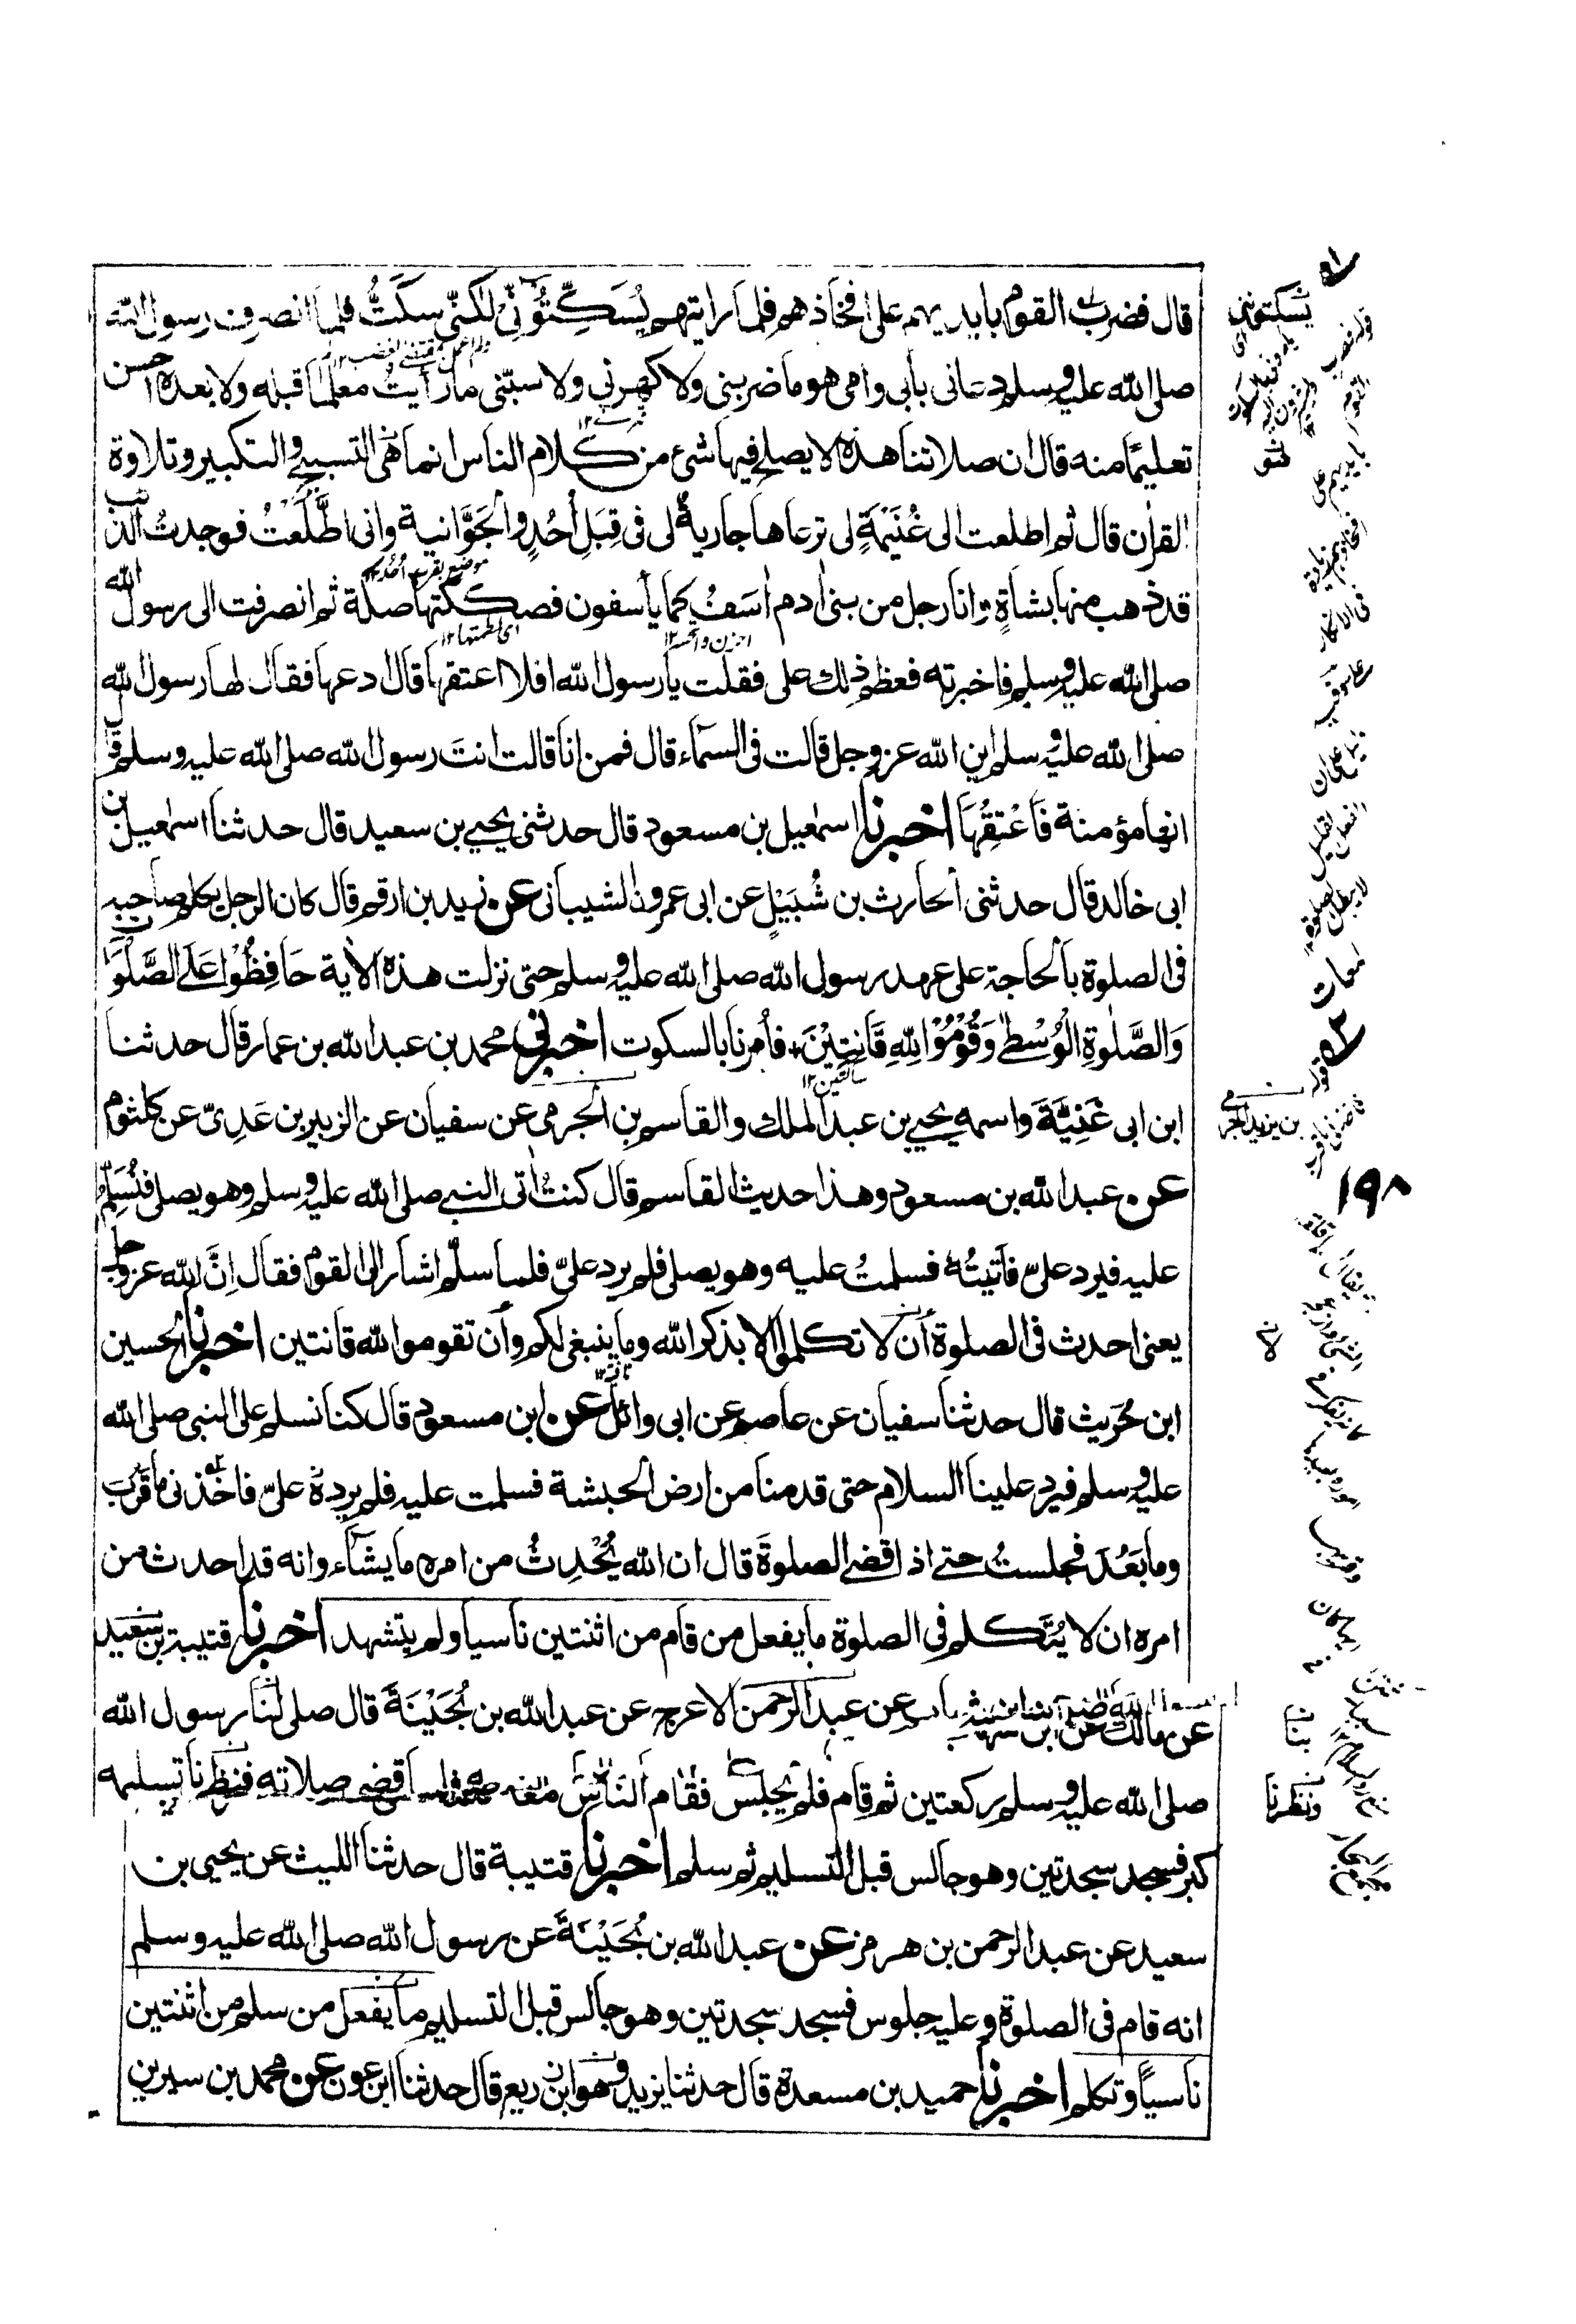 قال فضرب القوم بايديهم على افخاذهم فلما رايتهم يُسَكِّتُوْنِّي لكنّي سكَتُّ فلما انصرف رسول الله
صلى الله عليه وسلم دعانى بابى وامى هو ما ضربنى ولا كهرنى ولا سبّنى ما رأيتُ معلما قبله ولا بعده احسن
تعليمًا منه قال ان صلاتنا هذه لا يصلح فيها شئ من كلام الناس انما هى التسبيح والتكبير وتلاوة
القرأن قال ثم اطلعت الى غُنَيْمَةٍ لى ترعاها جاريةٌ لى فى قِبَلِ أُحُدٍ والجَوَّانية وانى اطَّلَعْتُ فوجدتُ الذئب
موضع بقرب احد ١٢
قد ذهب منها بشاةٍ وانا رجل من بنى أدم أسَفُ كما يأسفون فصككتها صكة ثم انصرفت الى رسول الله
اى لطمتها ١٢
صلى الله عليه وسلم فاخبرته فعظم ذلك على فقلت يا رسول الله افلا اعتقها قال ادعها فقال لها رسول الله
صلى الله عليه وسلم اين الله عز وجل قالت فى السماء قال فمن انا قالت انتَ رسول الله صلى الله عليه وسلم قال
انها مؤمنة فَاَعْتِقْهَا اخبرنا اسمعيل بن مسعود قال حدثنى يحيى بن سعيد قال حدثنا اسمعيل بن
ابى خالد قال حدثنى الحارث بن شُبَيْلٍ عن ابى عمرو الشيبانى عن زيد بن ارقم قال كان الرجل يكلم صاحبه
فى الصلوة بالحاجة على عهد رسول الله صلى الله عليه وسلم حتى نزلت هذه الأية حَافِظُوْا عَلَى الصَّلَوَات
وَالصَّلوةِ الْوُسْطى وَقُوْمُوْا لِلّهِ قَانِتِيْنَ فأمرنا بالسكوت اخبرنى محمد بن عبد الله بن عمار قال حدثنا
ساكتين ١٢
ابن ابى غَنِيَّةَ واسمه يحيى بن عبد الملك والقاسم بن الجرمى عن سفيان عن الزبير بن عَدِىّ عن كلثوم
عن عبد الله بن مسعود وهذا حديث القاسم قال كنتُ أتى النبى صلى الله عليه وسلم وهو يصلى فَنُسَلِّمُ
عليه فيرد علىّ فأتيتُهُ فسلمتُ عليه وهو يصلى فلم يرد علىّ فلما سلّم اشار الى القوم فقال اِنَّ الله عز وجل
يعنى احدث فى الصلوة أن لا تكلموا الا بذكر الله وما ينبغى لكم وأن تقوموا لله قانتين اخبرنا الحسين
ابن حُرَيث قال حدثنا سفيان عن عاصم عن ابى وائل عن ابن مسعود قال كنا نسلم على النبى صلى الله
عليه وسلم فيرد علينا السلام حتى قدمنا من ارض الحبشة فسلمت عليه فلم يرده علىّ فاخذنى ما قَرُبَ
وما بَعُدَ فجلستُ حتى اذا قضى الصلوةَ قال ان الله يُحْدِثُ من امره ما يشاء وانه قد احدث من
امره ان لا يُتَكلم فى الصلوة ما يفعل من قام من اثنتين ناسيا ولم يتشهد اخبرنا قتيبة بن سعيد
عن مالك عن ابن شهاب عن عبد الرحمن الاعرج عن عبد الله بن بُحَيْنَةَ قال صلى لنا رسول الله
صلى الله عليه وسلم ركعتين ثم قام فلم يجلس فقام النَاسُ معه فلما قضى صلاته فنظرنا تسليمه
كبر فسجد سجدتين وهو جالس قبل التسليم ثم سلم اخبرنا قتيبة قال حدثنا الليث عن يحيى بن
سعيد عن عبد الرحمن بن هرمز عن عبد الله بن بُحَيْنَةَ عن رسول الله صلى الله عليه وسلم
انه قام فى الصلوة وعليه جلوس فسجد سجدتين وهو جالس قبل التسليم ما يفعل من سلم من اثنتين
ناسيًا وتكلم اخبرنا حميد بن مسعدة قال حدثنا يزيد وهو ابن زريع قال حدثنا ابن عون عن محمد بن سيرين
يسكتوننى
بن يزيد الجرمى
١٩٨
ونظرنا